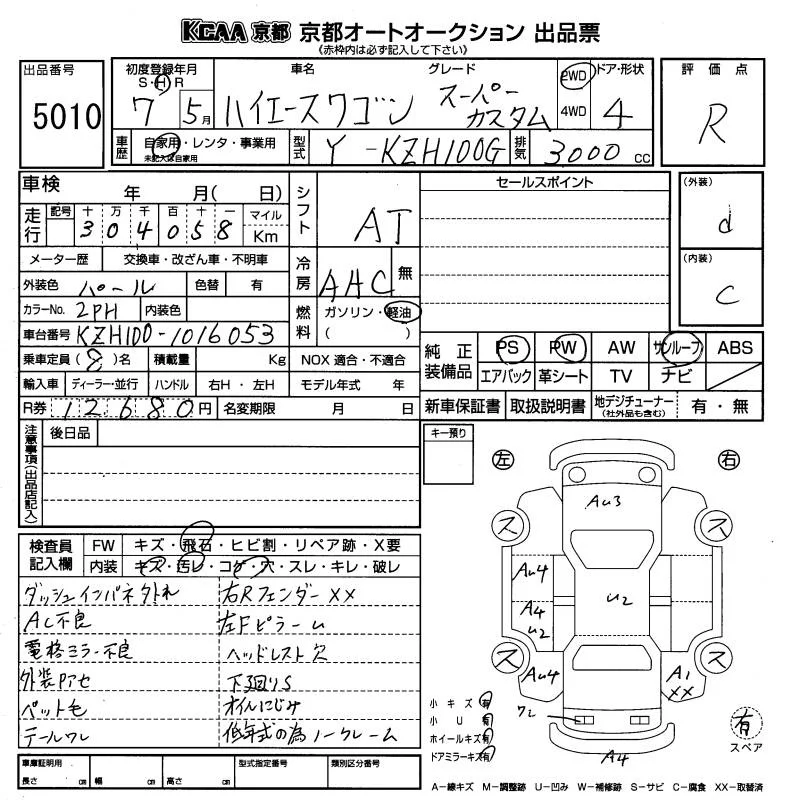 KCAA 京都 京都オートオークション 出品票
《赤枠内は必ず記入して下さい》
出品番号
5010
初度登録年月
S・H・R
7 5月
車名
ハイエースワゴン
グレード
スーパー
カスタム
2WD
4WD
ドア・形状
4
評価点
R
車歴
自家用・レンタ・事業用
未記入は自家用
型式
Y-KZH100G
排気
3000 CC
車検 年 月( 日)
走行
記号 十 万 千 百 十 一
304058
マイル
Km
シフト
AT
メーター歴 交換車・改ざん車・不明車
外装色 パール 色替 有
冷房
AHC 無
カラーNo. 2PH 内装色
燃料
ガソリン・軽油
( )
車台番号 KZH100-1016053
乗車定員(8)名 積載量 Kg NOX 適合・不適合
輸入車 ディーラー・並行 ハンドル 右H・左H モデル年式 年
R券 12680円 名変期限 月 日
セールスポイント
(外装)
d
(内装)
C
純正装備品
PS PW AW サンルーフ ABS
エアバック 革シート TV ナビ
新車保証書 取扱説明書 地デジチューナー (社外品も含む) 有・無
注意事項(出品店記入)
後日品
キー預り
検査員記入欄
FW キズ・飛石・ヒビ割・リペア跡・X要
内装 キズ・汚レ・コゲ・穴・スレ・キレ・破レ
ダッシュインパネ外れ 右Rフェンダー XX
AC不良 左Fピラー ム
電格ミラー不良 ヘッドレスト欠
外装Pアセ 下廻りS
ペット毛 オイルにじみ
テールワレ 低年式の為ノークレーム
車庫証明用
長さ cm 幅 cm 高さ cm
型式指定番号
類別区分番号
左 右
Au3
ス ス
Au4
A4
U2
U2
ス ス
Au4
A1
XX
ワレ
A4
小キズ 有
小U 有
ホイールキズ 有
ドアミラーキズ 有
有
スペア
A―線キズ M―調整跡 U―凹み W―補修跡 S―サビ C―腐食 XX―取替済